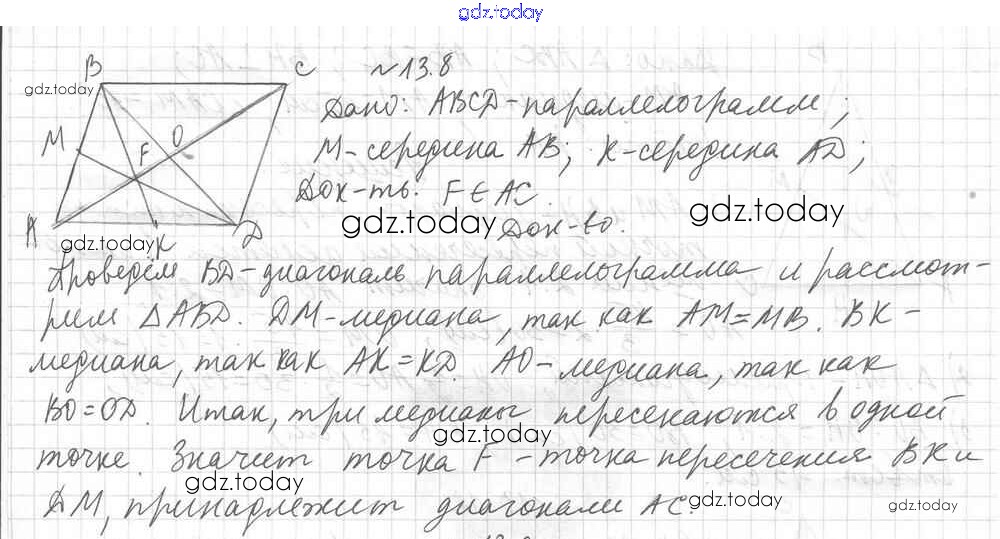 gdz.today
B
C
№13.8
gdz.today
Дано: ABCD-параллелограмм;
M
O
F
M-середина AB; K-середина AD;
Док-ть: F∈AC.
gdz.today
gdz.today
A
K
D
Док-во.
gdz.today
Проведём BD-диагональ параллелограмма и рассмот-
рим △ABD. DM-медиана, так как AM=MB. BK-
медиана, так как AK=KD. AO-медиана, так как
BO=OD. Итак, три медианы пересекаются в одной
gdz.today
точке. Значит точка F-точка пересечения BK и
gdz.today
gdz.today
DM, принадлежит диагонали AC.
gdz.today